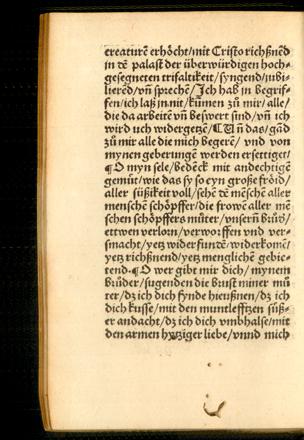 creaturẽ erhöcht/mit Cristo richßnẽd
in dẽ palast der überwürdigen hoch-
gesegneten trifaltikeit/syngend/iubi-
lierẽd/vñ sprechẽ/Ich hab in begrif-
fen/ich laß in nit/kůmen zů mir/alle/
die da arbeitẽ vñ beswert sind/vñ ich
wird uch widergetzẽ/Uñ das/gãd
zů mir alle die mich begerẽ/ vnd von
mynen geberungẽ werden ersettiget/
¶O myn sele/bedẽck mit andechtigẽ
gemüt/wie das sy so eyn große fröid/
aller süßikeit voll/sehẽ dẽ mẽschẽ aller
menschẽ schöpffer/die frowẽ aller mẽ
schen schöpffers můter/vnserñ brůd/
ettwen verlorn/verworffen vnd ver-
smacht/yetz widerfundẽ/widerkomẽ/
yetz richßnend/yetz menglichẽ gebie-
tend. ¶O wer gibt mir dich/ mynem
brůder/sugenden die brust miner mů
ter/dz ich dich fynde hieußnen/dz ich
dich kusse/mit den muntlefftzen süß-
er andacht/dz ich dich vmbhalse/mit
den armen hytziger liebe/vnnd mich